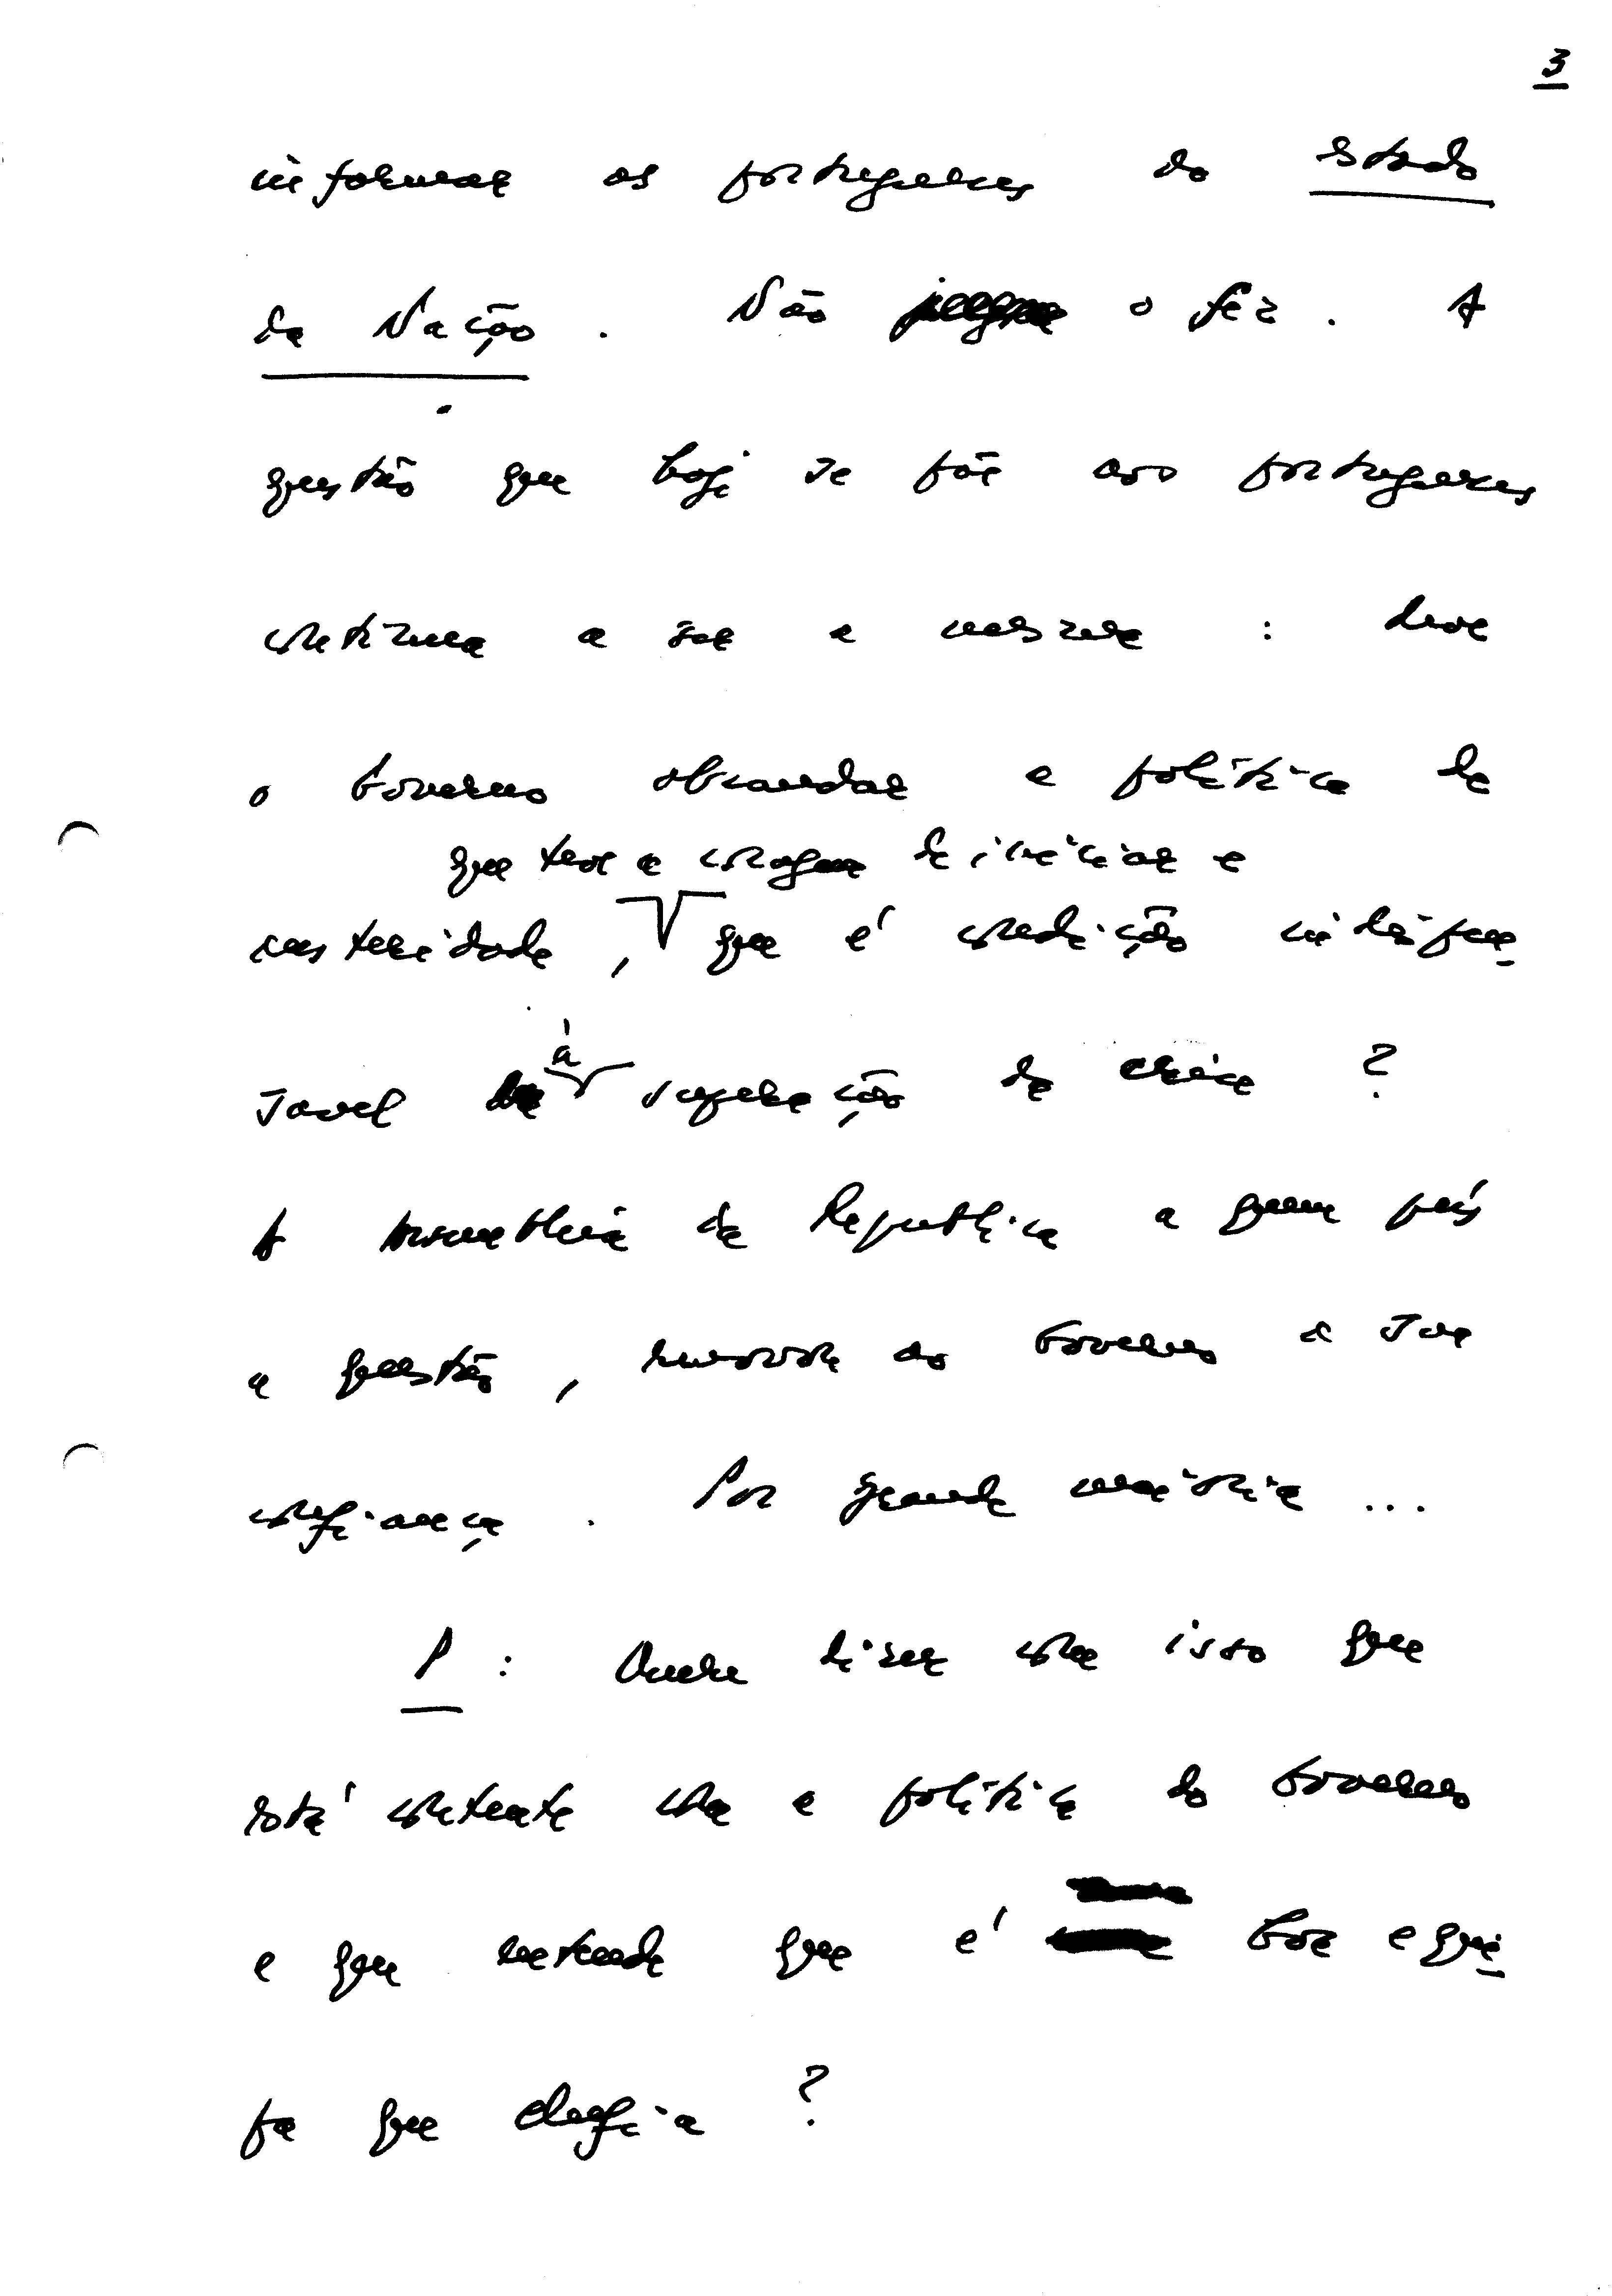 3
informar os portugueses do Estado
da Nação. Não o fez. A
questão que hoje se põe aos portugueses
continua a ser a mesma : deve
o Governo abrandar a política de
que teve a coragem de iniciar e
austeridade, que é condição indispen
sável à superação da crise ?
A Assembleia da Republica a quem pôs
a questão, renovou ao Governo a sua
confiança. Por grande maioria ...
P : Quer dizer com isso que
está contente com a política do Governo
e que entende que é boa a equi
pa que chefia ?